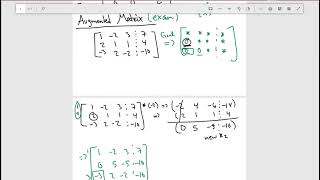 Augmented Matrix (exam)
[ 1 -2 3 : 7
2 1 1 : 4
-3 2 -2 : -10 ]
Goal
=> [ * * * : *
0 * * : *
0 0 * : * ]
[ 1 -2 3 : 7
2 1 1 : 4
-3 2 -2 : -10 ] * (-2) => (-2 4 -6 : -14)
2 1 1 : 4
(0 5 -5 : -10)
new R2
=> [ 1 -2 3 : 7
0 5 -5 : -10
-3 2 -2 : -10